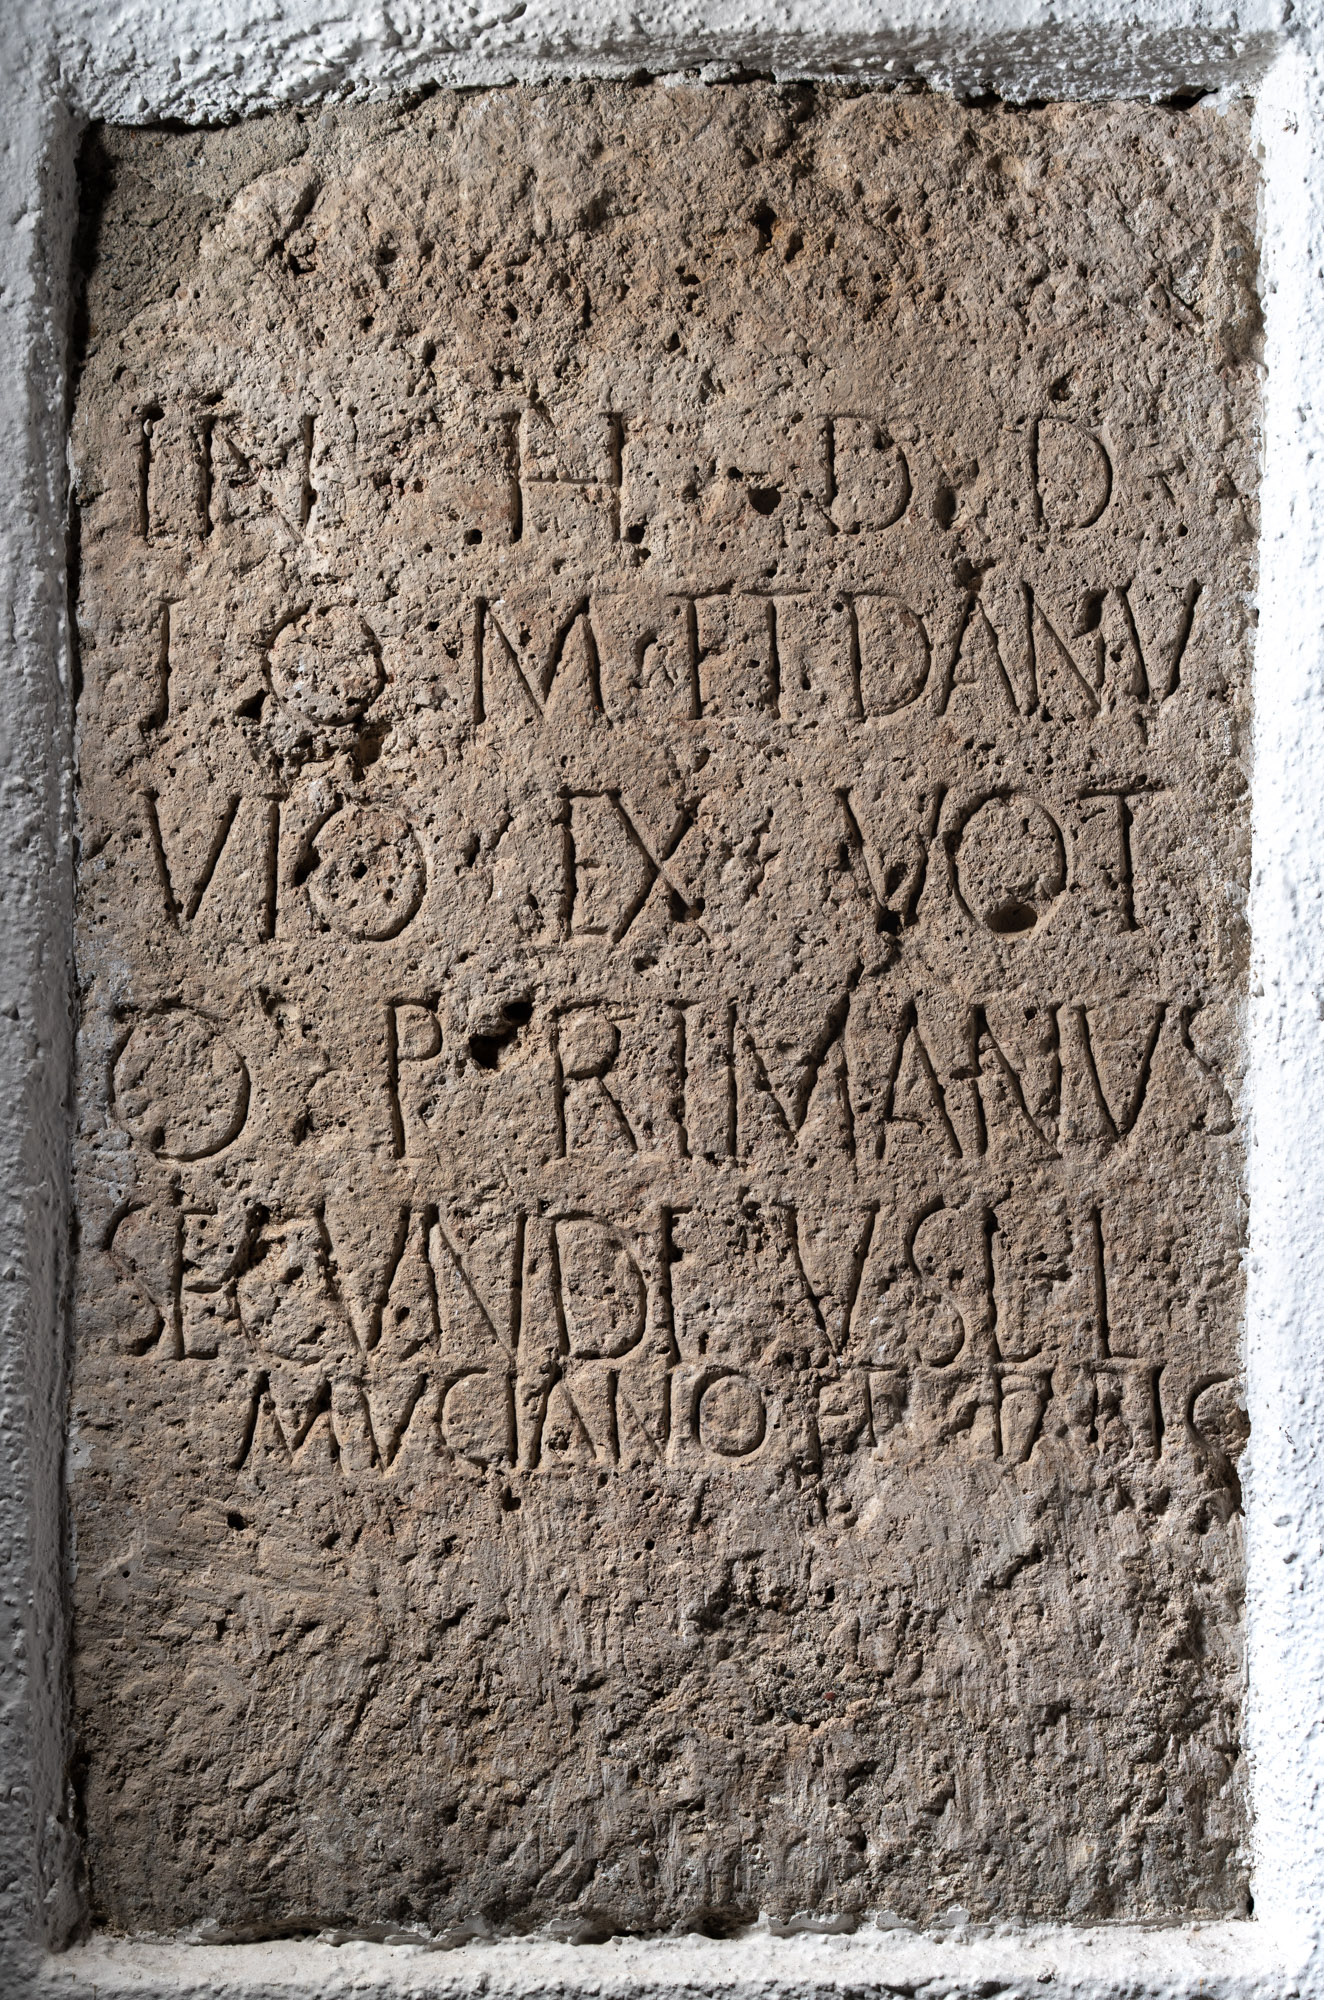 IN H D D
I O M ET DANV
VIO EX VOT
O P R IMANVS
SECVNDI V S L L
MVCIANO ET FABIC